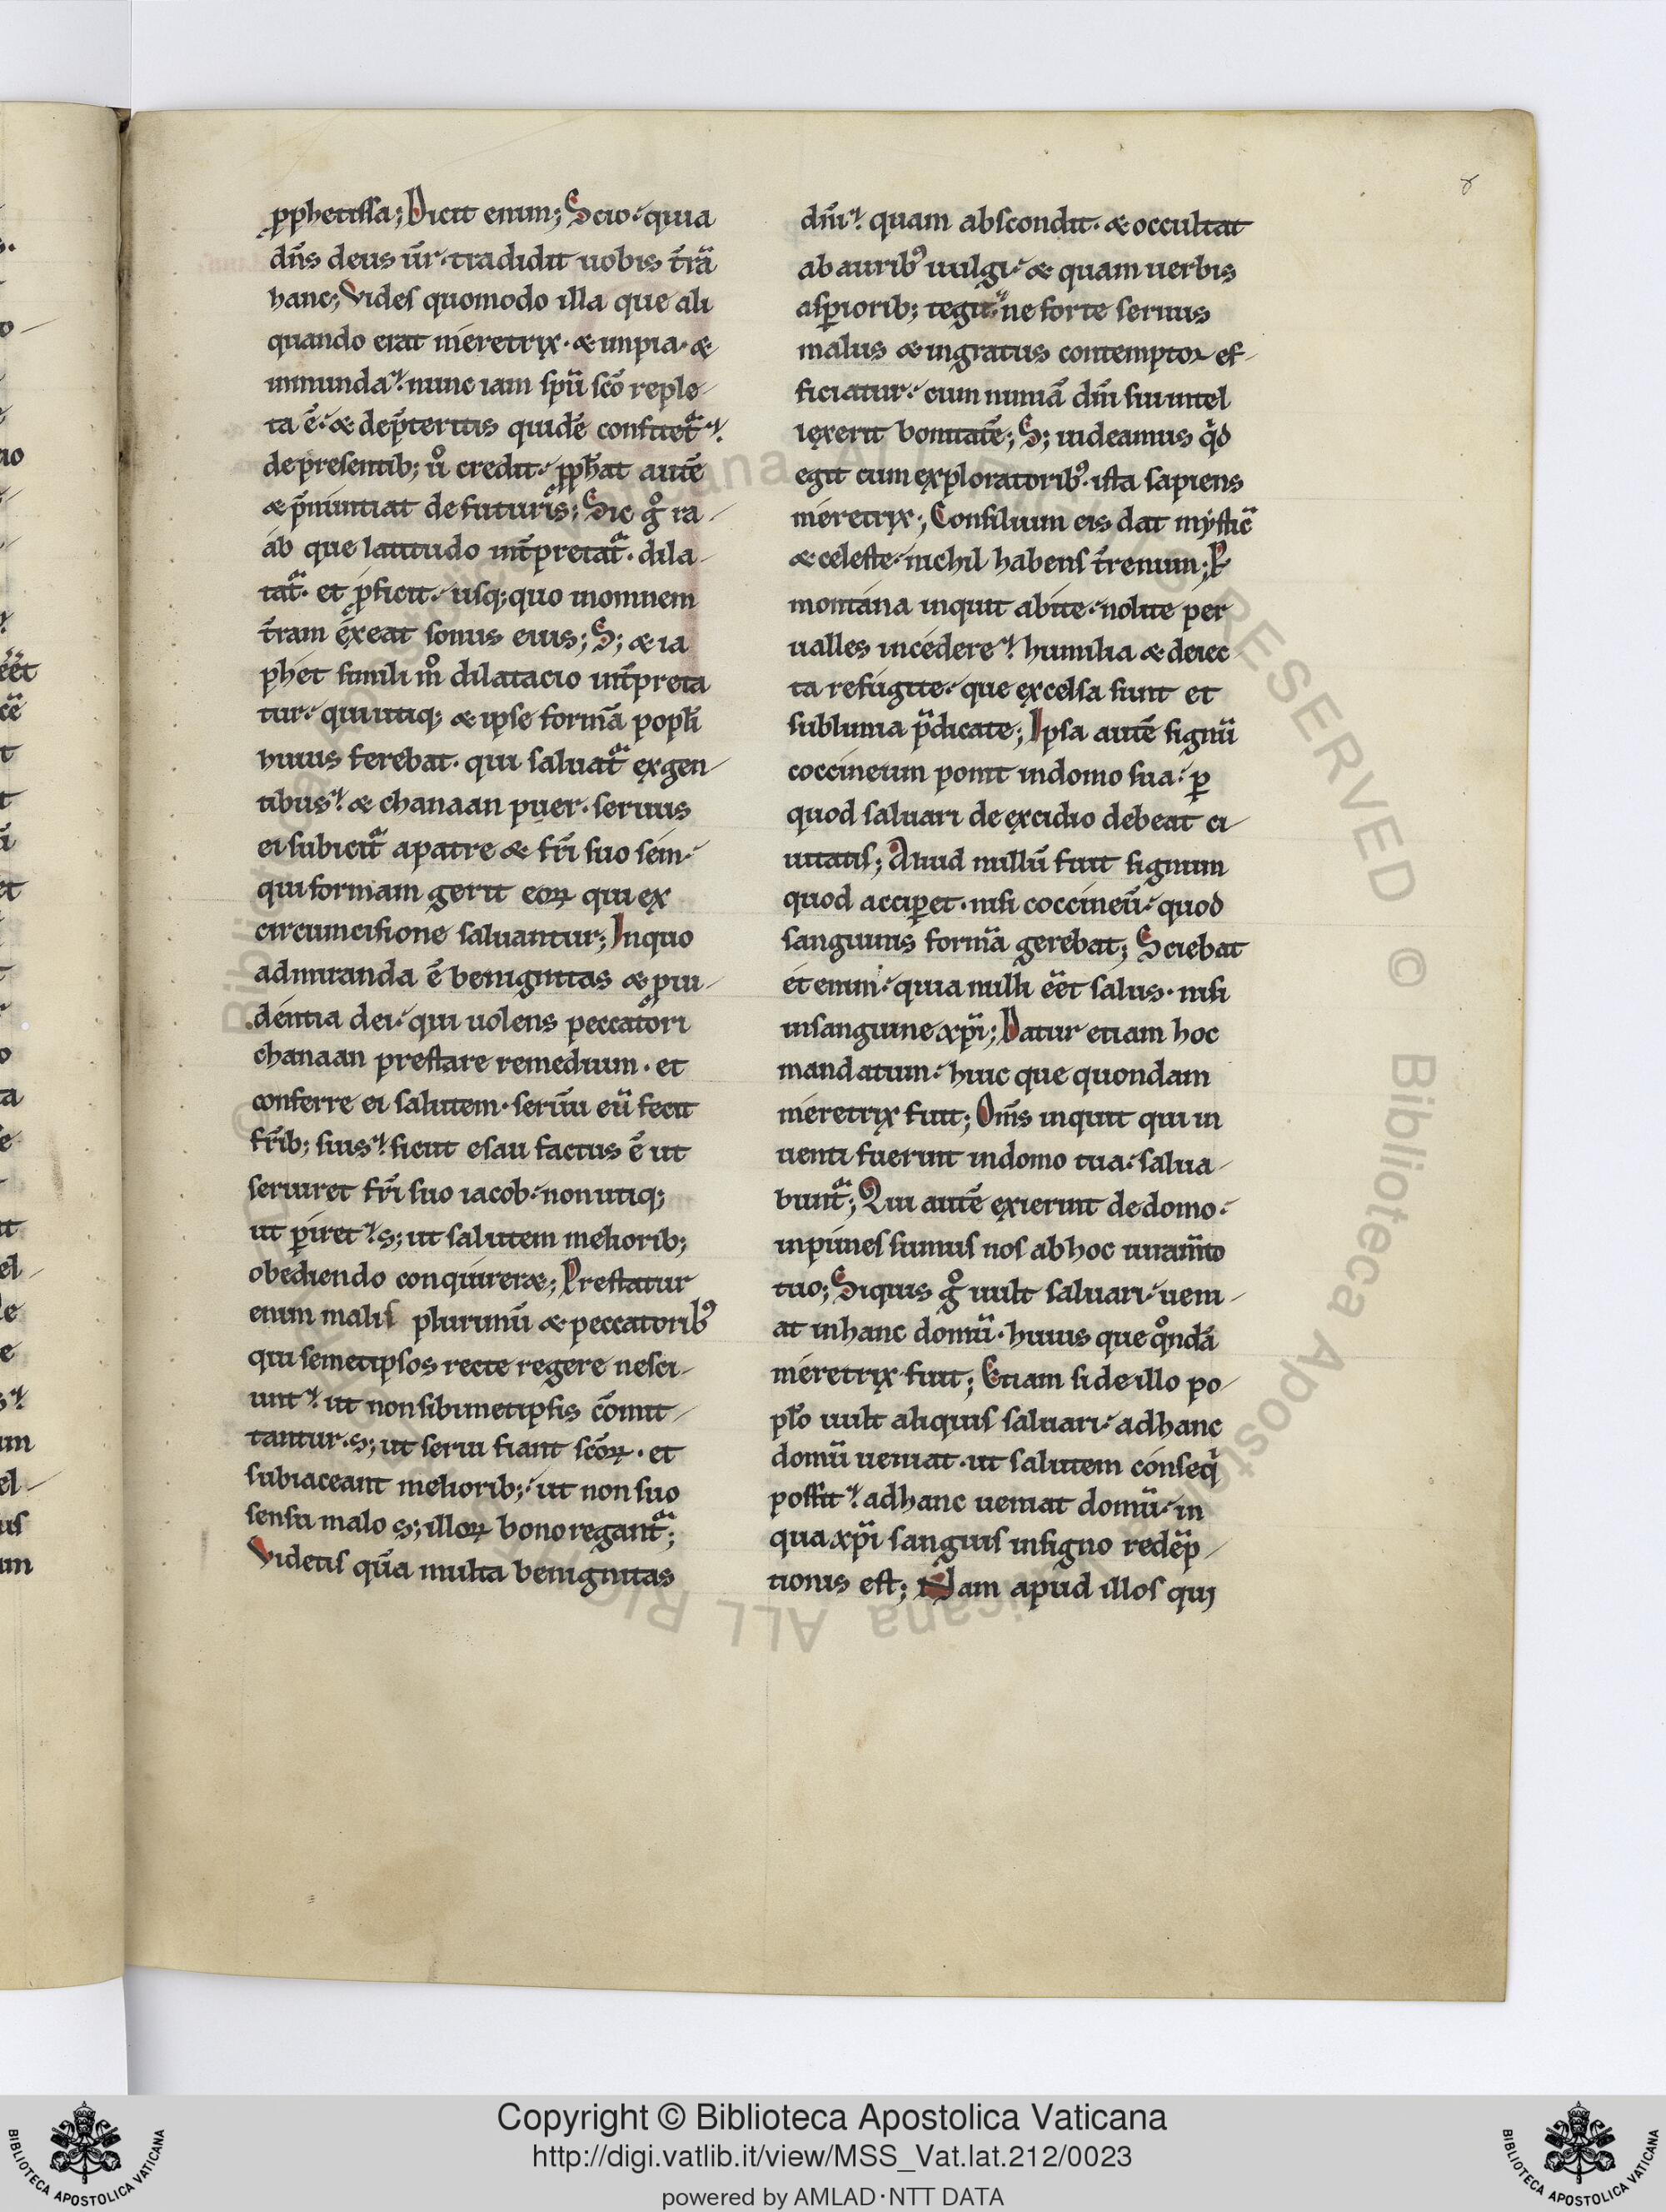 ꝓphetissa; Dicit enim; Scio· quia
dn̄s deus ur̄· tradidit uobis tr̄ā
hanc; Vides quomodo illa que ali
quando erat meretrix· & inpia· &
inmunda· nunc iam spū scō reple-
ta ē· & de p̄teritis quidē confitet᷑·
de presentib; ů credit· ꝓph̄at autē
& p̄nuntiat de futuris; Sic g̊ ra-
ab que latitudo int̄pretat᷑· dila-
tat᷑· et ꝓficit· usq; quo in omnem
tr̄am exeat sonus eius; S; & ia
phet simili m̊ dilatacio int̄preta
tur· qui utiq; & ipse formā popl̄i
huius ferebat· qui saluat᷑ ex gen-
tibus· & chanaan puer· seruus
ei subicit᷑ a patre & fr̄i suo sem·
qui formam gerit eoꝝ qui ex
circumcisione saluantur; In quo
admiranda ē benignitas & pru-
dentia dei· qui uolens peccatori
chanaan prestare remedium· et
conferre ei salutem· seruū eū fecit
fr̄ib; suis· sicut esau factus ē ut
seruiret fr̄i suo iacob· non utiq;
ut ꝑiret· s; ut salutem meliorib;
obediendo conquireræ; Prestatur
enim malis plurimū & peccatorib᷒
qui semetipsos recte regere nesci-
unt· ut non sibimetipsis cōmit-
tantur· s; ut serui fiant scōꝝ· et
subiaceant meliorib;· ut non suo
sensu malo s; illoꝝ bono regant᷑;
Videtis qūa multa benignitas
dn̄i· quam abscondit· & occultat
ab aurib᷒ uulgi· & quam uerbis
asꝑiorib; tegit· ne forte seruus
malus & ingratus contemptor ef-
ficiatur· cum nimiā dn̄i sui intel
lexerit bonitatē; S; uideamus qd̄
egit cum exploratorib᷒· ista sapiens
meretrix; Consilium eis dat mysticū
& celeste· nichil habens tr̄enum;
montana inquit abite· nolite per
ualles incedere· humilia & deiec
ta refugite· que excelsa sunt et
sublimia p̄dicate; Ipsa autē signū
coccineum ponit in domo sua· ꝑ
quod saluari de excidio debeat ci-
uitatis; Aliud nullū fuit signum
quod acciꝑet· nisi coccineū· quod
sanguinis formā gerebat; Sciebat
et enim· quia nulli eēt salus· nisi
in sanguine xp̄i; Datur etiam hoc
mandatum· huic que quondam
meretrix fuit; Om̄s inquit qui in
uenti fuerint in domo tua· salua-
bunt᷑; Qui autē exierint de domo·
inpunes sumus nos ab hoc iuram̄to
tuo; Siquis g̊ uult saluari· ueni-
at in hanc domū· huius que q̊ndā
meretrix fuit; Etiam si de illo po-
pl̄o uult aliquis saluari· ad hanc
domū ueniat· ut salutem conseq
possit· ad hanc ueniat domū· in
qua xp̄i sanguis in signo redēp-
tionis est; Nam apud illos qui
Copyright © Biblioteca Apostolica Vaticana
http://digi.vatlib.it/view/MSS_Vat.lat.212/0023
powered by AMLAD·NTT DATA
BIBLIOTECA APOSTOLICA VATICANA
BIBLIOTECA APOSTOLICA VATICANA